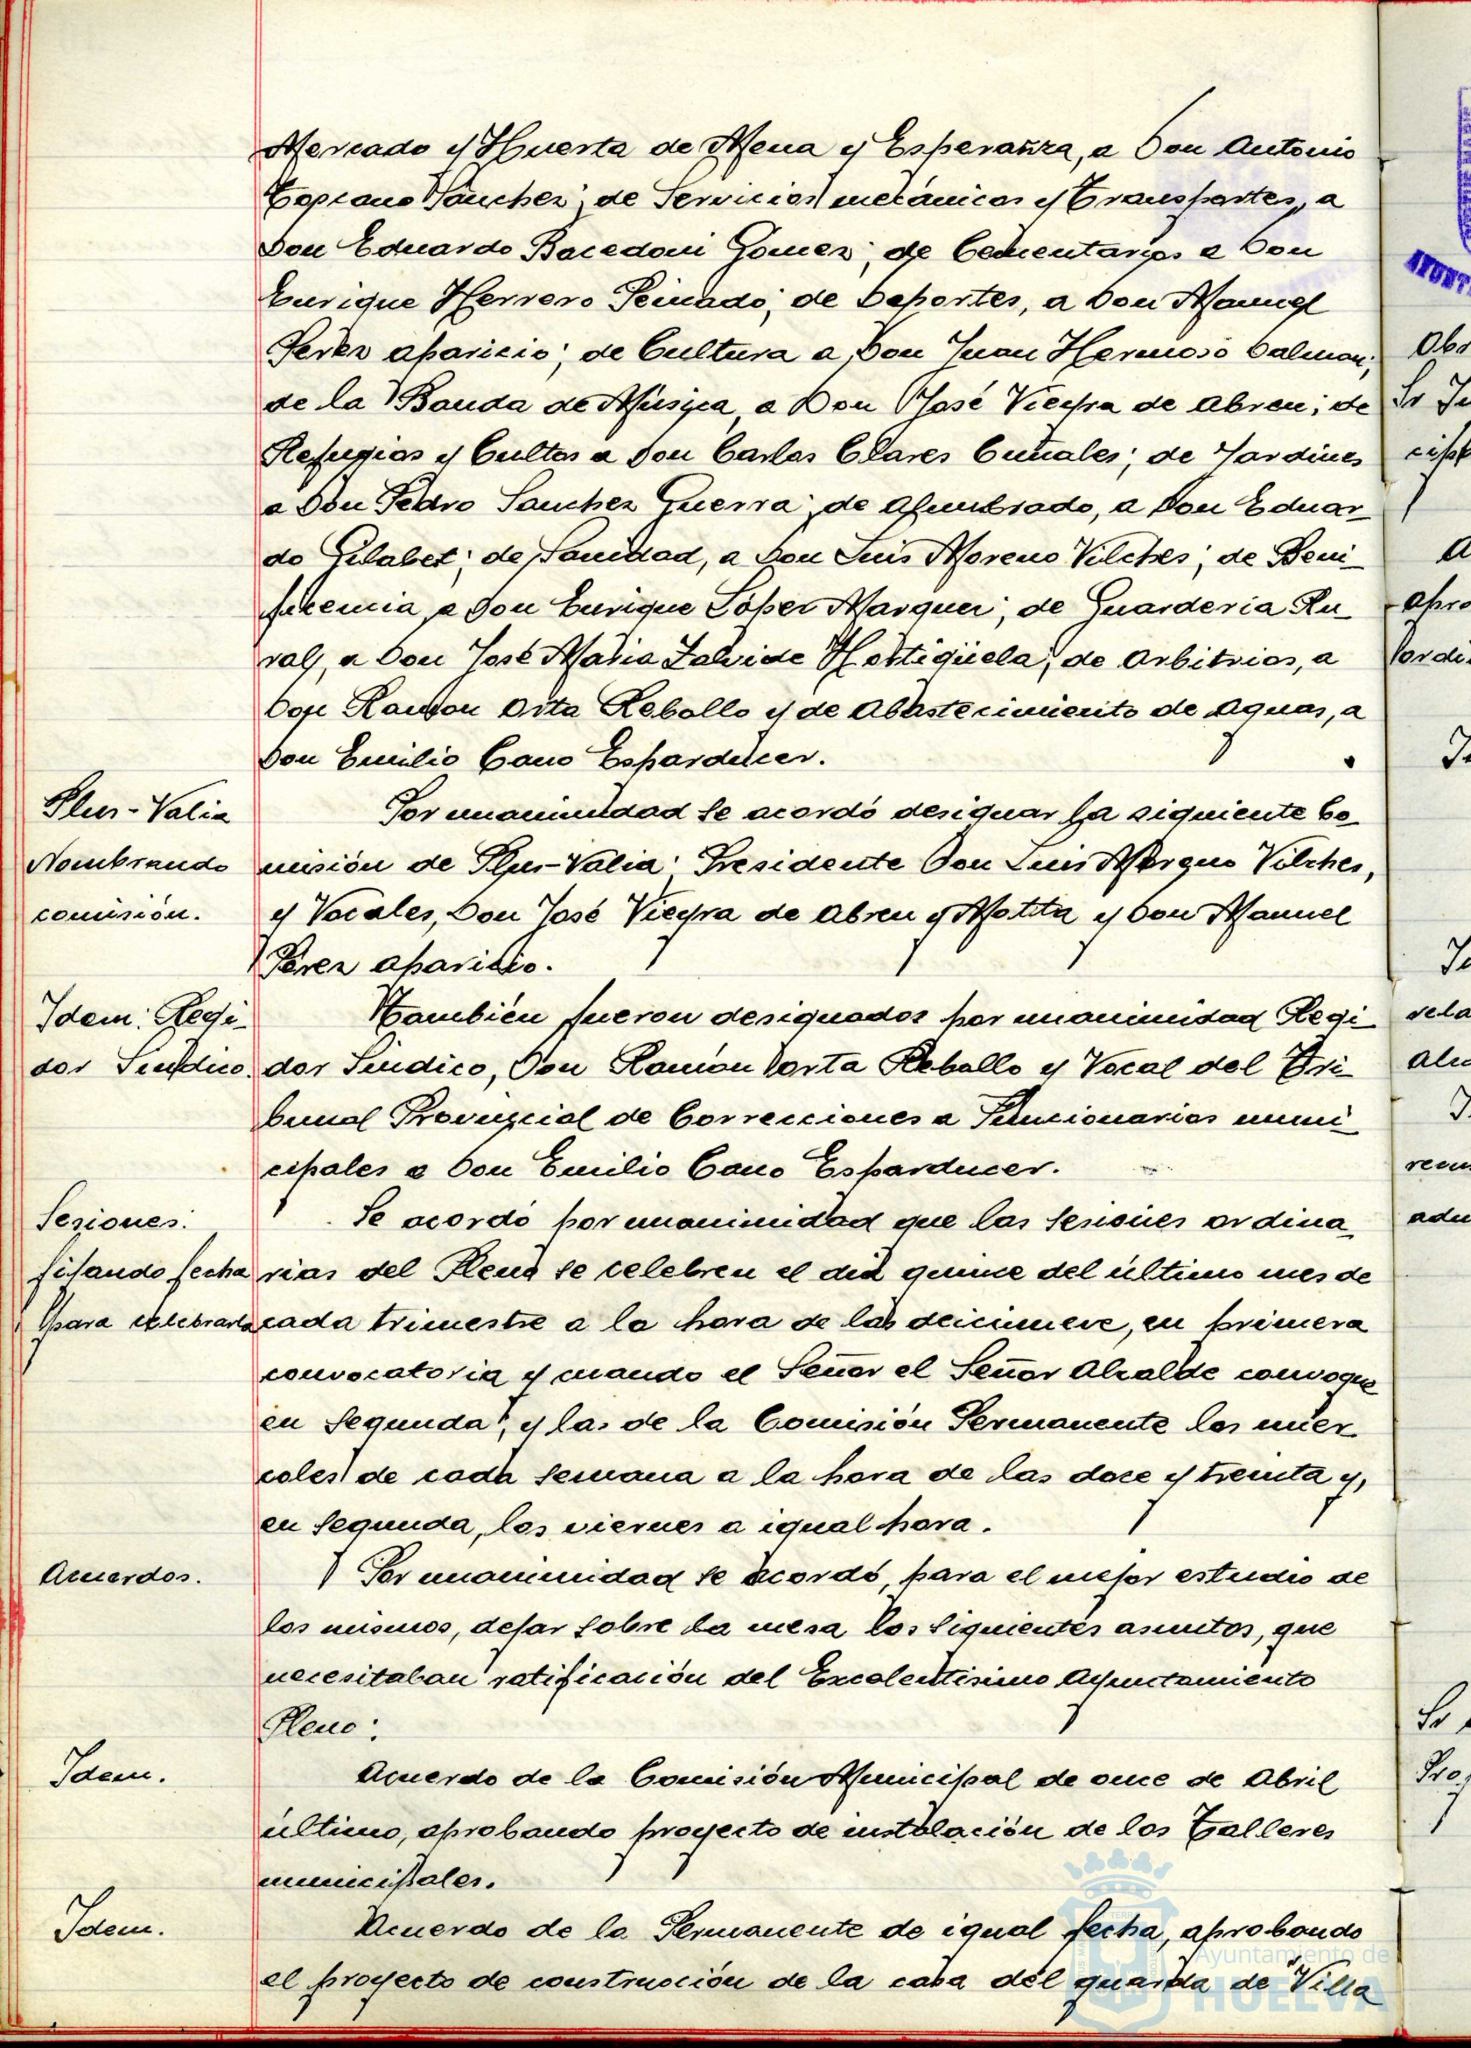 Mercado y Huerta de Mena y Esperanza, a Don Antonio
Toscano Sánchez; de Servicios mecánicos y Transportes, a
Don Eduardo Bacedoni Gomez; de Cementarios a Don
Enrique Herrero Peinado; de Deportes, a Don Manuel
Perez Aparicio; de Cultura a Don Juan Hermoso Dalmau;
de la Banda de Música, a Don José Vieyra de Abreu; de
Refugios y Cultos a Don Carlos Clares Cuñales; de Jardines
a Don Pedro Sanchez Guerra; de Alumbrado, a Don Eduar-
do Gilabet; de Sanidad, a Don Luis Moreno Vilches; de Beni-
ficencia a Don Enrique López Marquez; de Guarderia Ru-
ral, a Don José Maria Zalvide Hortigüela; de Arbitrios, a
Don Ramon Orta Rebollo y de Abastecimiento de Aguas, a
Don Emilio Cano Esparducer.
Plus-Valia
Nombrando
comisión.
Por unanimidad se acordó designar la siguiente Co-
misión de Plus-Valia: Presidente Don Luis Moreno Vilches,
y Vocales, Don José Vieyra de Abreu y Motta y Don Manuel
Pérez Aparicio.
Idem: Regi-
dor Sindico.
También fueron designados por unanimidad Regi-
dor Sindico, Don Ramón Orta Rebollo y Vocal del Tri-
bunal Provincial de Correcciones a Funcionarios muni-
cipales a Don Emilio Cano Esparducer.
Sesiones:
fijando fecha
para celebrarla
Se acordó por unanimidad que las sesiones ordina-
rias del Pleno se celebren el dia quince del último mes de
cada trimestre a la hora de las deicinueve, en primera
convocatoria y cuando el Señor el Señor Alcalde convoque
en segunda; y las de la Comisión Permanente los miér-
coles de cada semana a la hora de las doce y treinta y,
en segunda, los viernes a igual hora.
Acuerdos.
Por unanimidad se acordó, para el mejor estudio de
los mismos, dejar sobre la mesa los siguientes asuntos, que
necesitaban ratificación del Excelentísimo Ayuntamiento
Pleno:
Idem.
Acuerdo de la Comisión Municipal de once de Abril
último, aprobando proyecto de instalación de los Talleres
municipales.
Idem.
Acuerdo de la Permanente de igual fecha, aprobando
el proyecto de construcción de la casa del guarda de "Villa
Ayuntamiento de
HUELVA